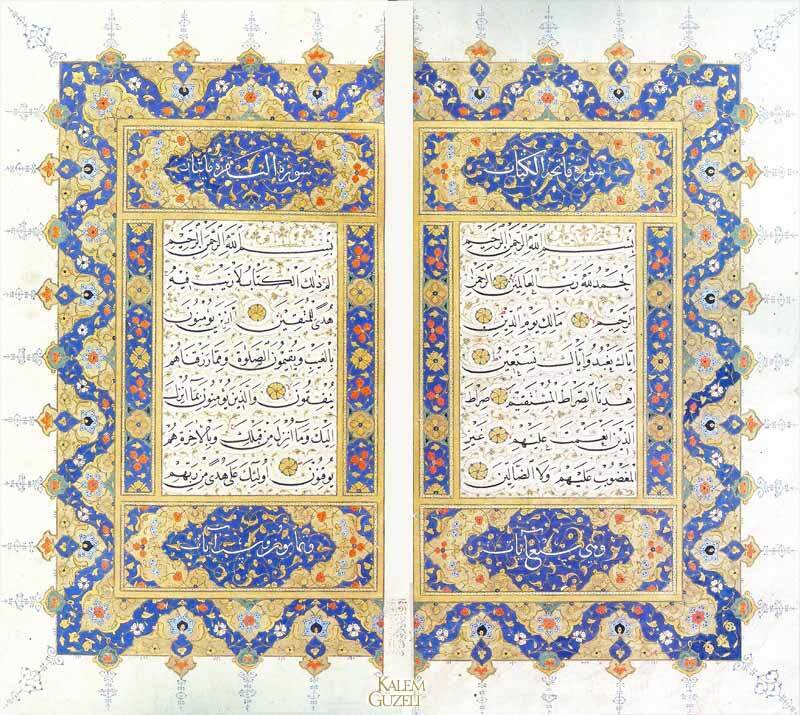 سورة فاتحة الكتاب
بِسْمِ اللهِ الرَّحْمٰنِ الرَّحِيمِ
اَلْحَمْدُ لِلّٰهِ رَبِّ الْعَالَمِينَ الرَّحْمٰنِ
الرَّحِيمِ مَالِكِ يَوْمِ الدِّينِ
اِيَّاكَ نَعْبُدُ وَاِيَّاكَ نَسْتَعِينُ
اِهْدِنَا الصِّرَاطَ الْمُسْتَقِيمَ صِرَاطَ
الَّذِينَ اَنْعَمْتَ عَلَيْهِمْ غَيْرِ
الْمَغْضُوبِ عَلَيْهِمْ وَلَا الضَّالِّينَ
وهي سبع آيات
سورة البقرة مايتان
بِسْمِ اللهِ الرَّحْمٰنِ الرَّحِيمِ
الم ذٰلِكَ الْكِتَابُ لَا رَيْبَ فِيهِ
هُدًى لِلْمُتَّقِينَ الَّذِينَ يُؤْمِنُونَ
بِالْغَيْبِ وَيُقِيمُونَ الصَّلٰوةَ وَمِمَّا رَزَقْنَاهُمْ
يُنْفِقُونَ وَالَّذِينَ يُؤْمِنُونَ بِمَا اُنْزِلَ
اِلَيْكَ وَمَا اُنْزِلَ مِنْ قَبْلِكَ وَبِالْاٰخِرَةِ هُمْ
يُوقِنُونَ اُولٰئِكَ عَلٰى هُدًى مِنْ رَبِّهِمْ
وثمانون وست آيات
KALEM
GÜZELİ